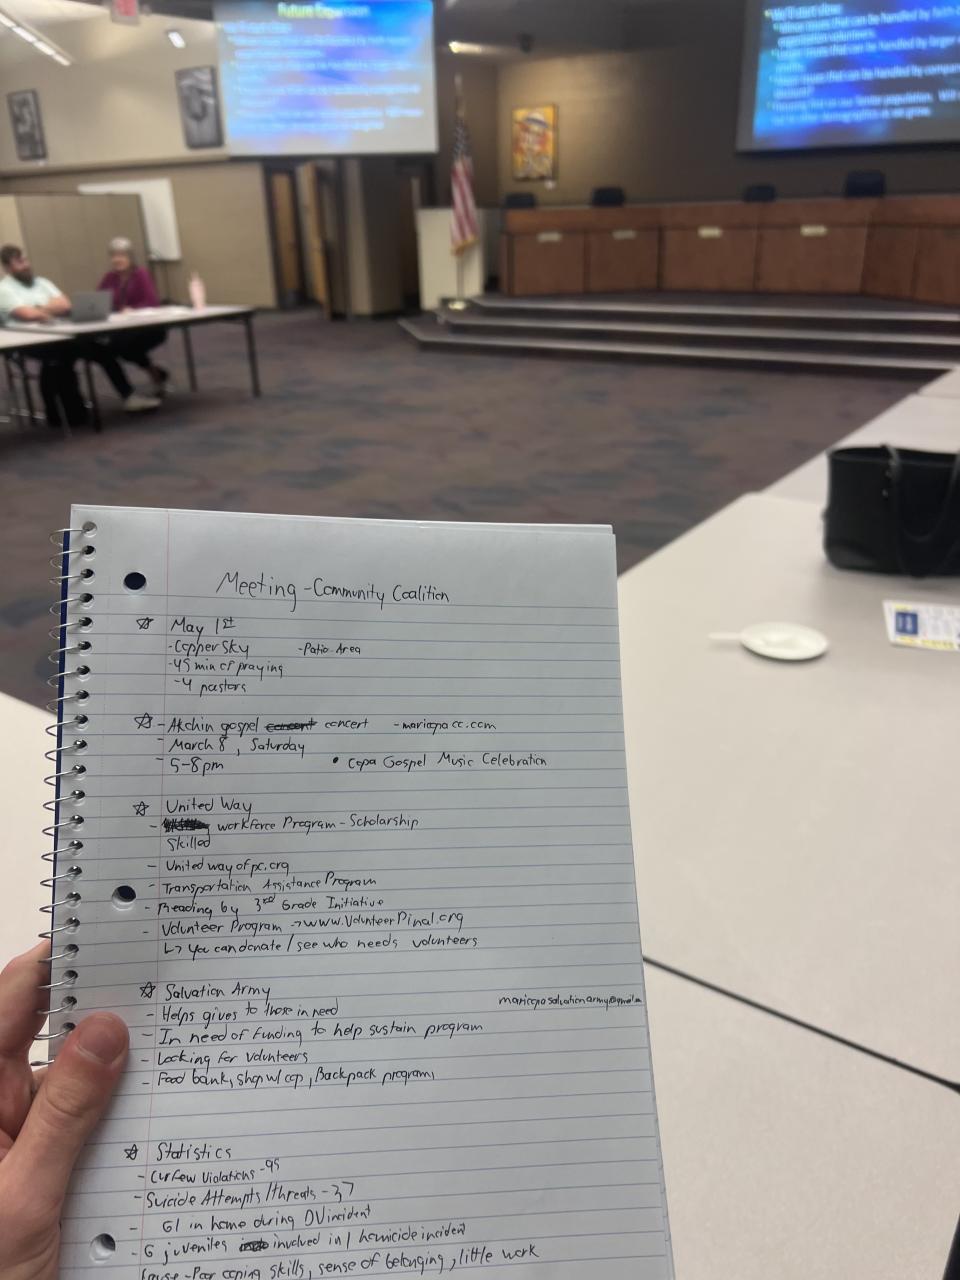 Future Expansion
We'll start slow:
organization volunteers.
Meeting - Community Coalition
☆ May 1st
- Copper Sky - Patio Area
- 45 min of praying
- 4 pastors
☆ - Akchin gospel concert - maricopacc.com
- March 8, Saturday
- 5-8pm • Copa Gospel Music Celebration
☆ United Way
- workforce Program - Scholarship
Skilled
- United way of pc.org
- Transportation Assistance Program
- Reading by 3rd Grade Initiative
- Volunteer Program → www.VolunteerPinal.org
↳ you can donate / see who needs volunteers
☆ Salvation Army
- Helps gives to those in need maricopasalvationarmy@gmail.
- In need of Funding to help sustain program
- Looking for Volunteers
- Food bank, shop w/ cop, Backpack program,
☆ Statistics
- Curfew Violations - 95
- Suicide Attempts / threats - 37
- 61 in home during DV incident
- 6 juveniles involved in 1 homicide incident
Cause - Poor coping skills, sense of belonging, little work